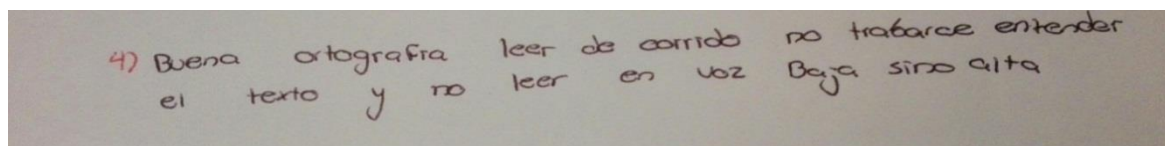 4) Buena ortografia leer de corrido no trabarce entender
el texto y no leer en voz Baja sino alta